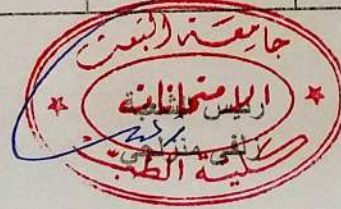 جامعة البعث
الامتحانات
رئيس شعبة
كلية الطب